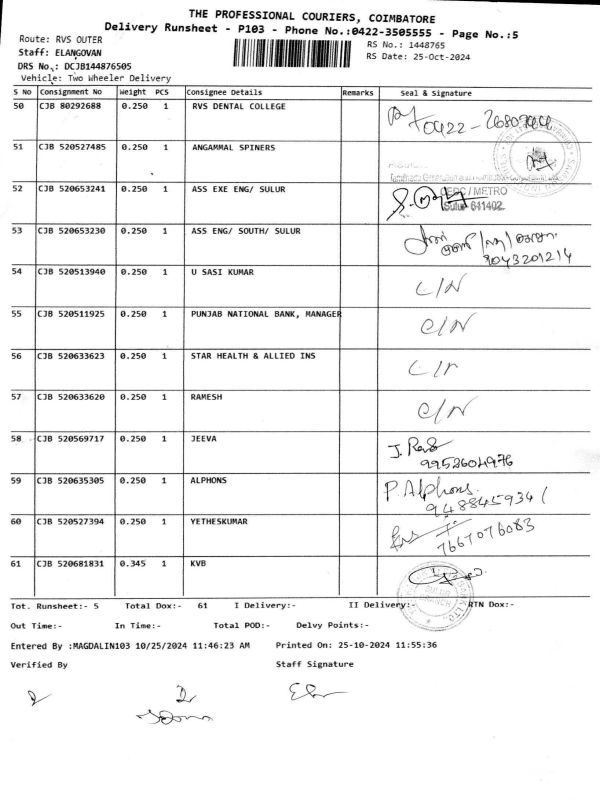 THE PROFESSIONAL COURIERS, COIMBATORE
Delivery Runsheet - P103 - Phone No.:0422-3505555 - Page No.:5
Route: RVS OUTER
RS No.: 1448765
Staff: ELANGOVAN
RS Date: 25-Oct-2024
DRS No.: DCJB144876505
Vehicle: Two Wheeler Delivery
S No Consignment No Weight PCS Consignee Details Remarks Seal & Signature
50 CJB 80292688 0.250 1 RVS DENTAL COLLEGE
51 CJB 520527485 0.250 1 ANGAMMAL SPINERS
52 CJB 520653241 0.250 1 ASS EXE ENG/ SULUR
/ METRO
Sulur 641402
53 CJB 520653230 0.250 1 ASS ENG/ SOUTH/ SULUR
9043201214
54 CJB 520513940 0.250 1 U SASI KUMAR C/N
55 CJB 520511925 0.250 1 PUNJAB NATIONAL BANK, MANAGER C/N
56 CJB 520633623 0.250 1 STAR HEALTH & ALLIED INS
57 CJB 520633620 0.250 1 RAMESH C/N
58 CJB 520569717 0.250 1 JEEVA
9952604976
59 CJB 520635305 0.250 1 ALPHONS P. Alphons.
60 CJB 520527394 0.250 1 YETHESKUMAR
7667076083
61 CJB 520681831 0.345 1 KVB
Tot. Runsheet:- 5 Total Dox:- 61 I Delivery:- II Delivery:- RTN Dox:-
Out Time:- In Time:- Total POD:- Delvy Points:-
Entered By :MAGDALIN103 10/25/2024 11:46:23 AM Printed On: 25-10-2024 11:55:36
Verified By Staff Signature